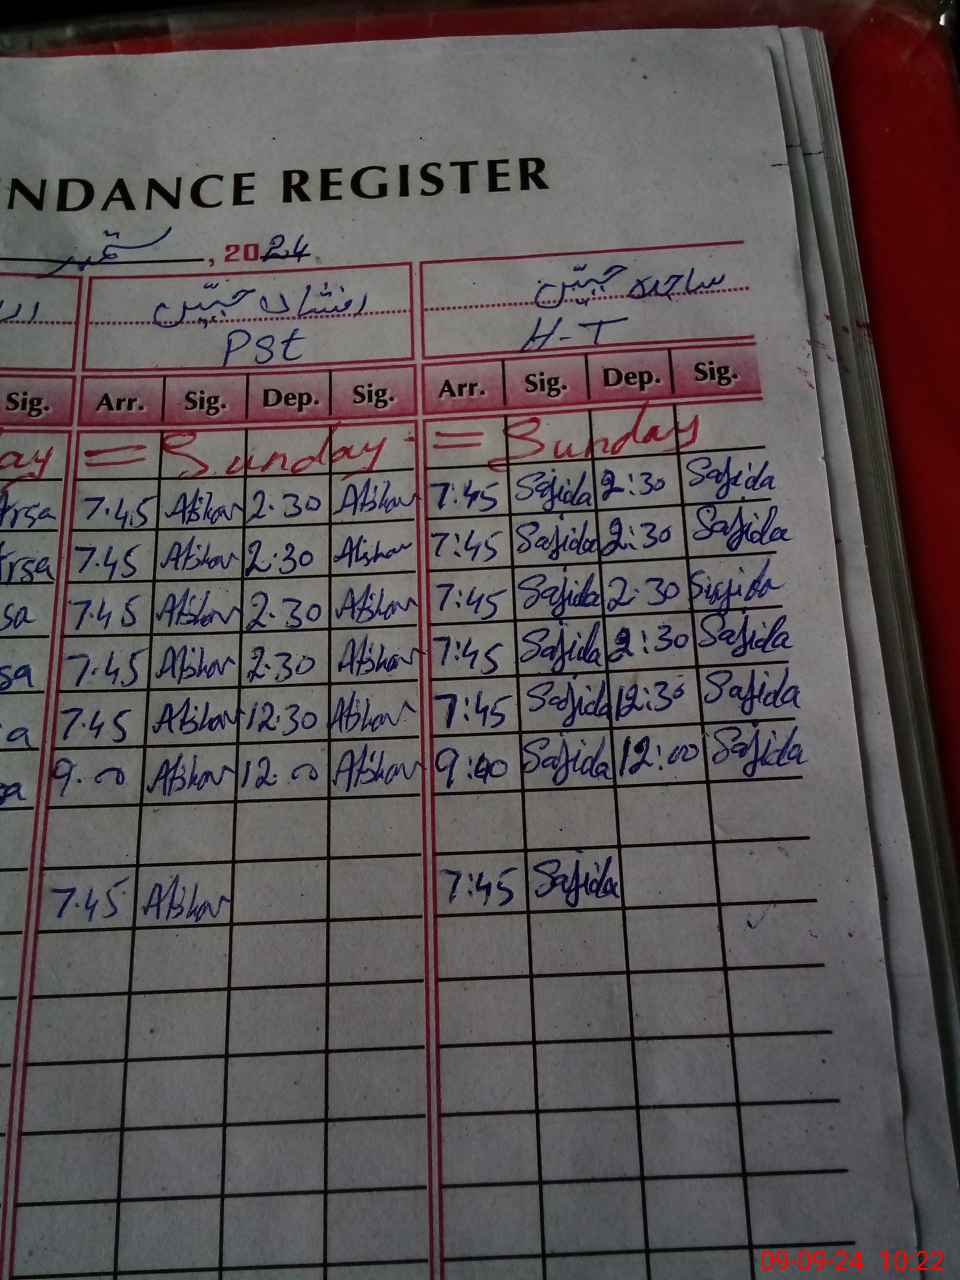 NDANCE REGISTER
ستمبر , 2024
افشاں جبیں ساجدہ جبیں
PSt H-T
Sig. Arr. Sig. Dep. Sig. Arr. Sig. Dep. Sig.
ay = Sunday = Sunday
Arsa 7.45 2.30 7:45 Sajida 2:30 Sajida
Arsa 7.45 2:30 7:45 Sajida 2:30 Sajida
sa 7.45 2.30 7:45 Sajida 2.30 Sajida
sa 7.45 2.30 7:45 Sajida 2:30 Sajida
a 7.45 12.30 7:45 Sajida 12:30 Sajida
sa 9.00 12.00 9:40 Sajida 12:00 Sajida
7.45 7:45 Sajida
09-09-24 10:22